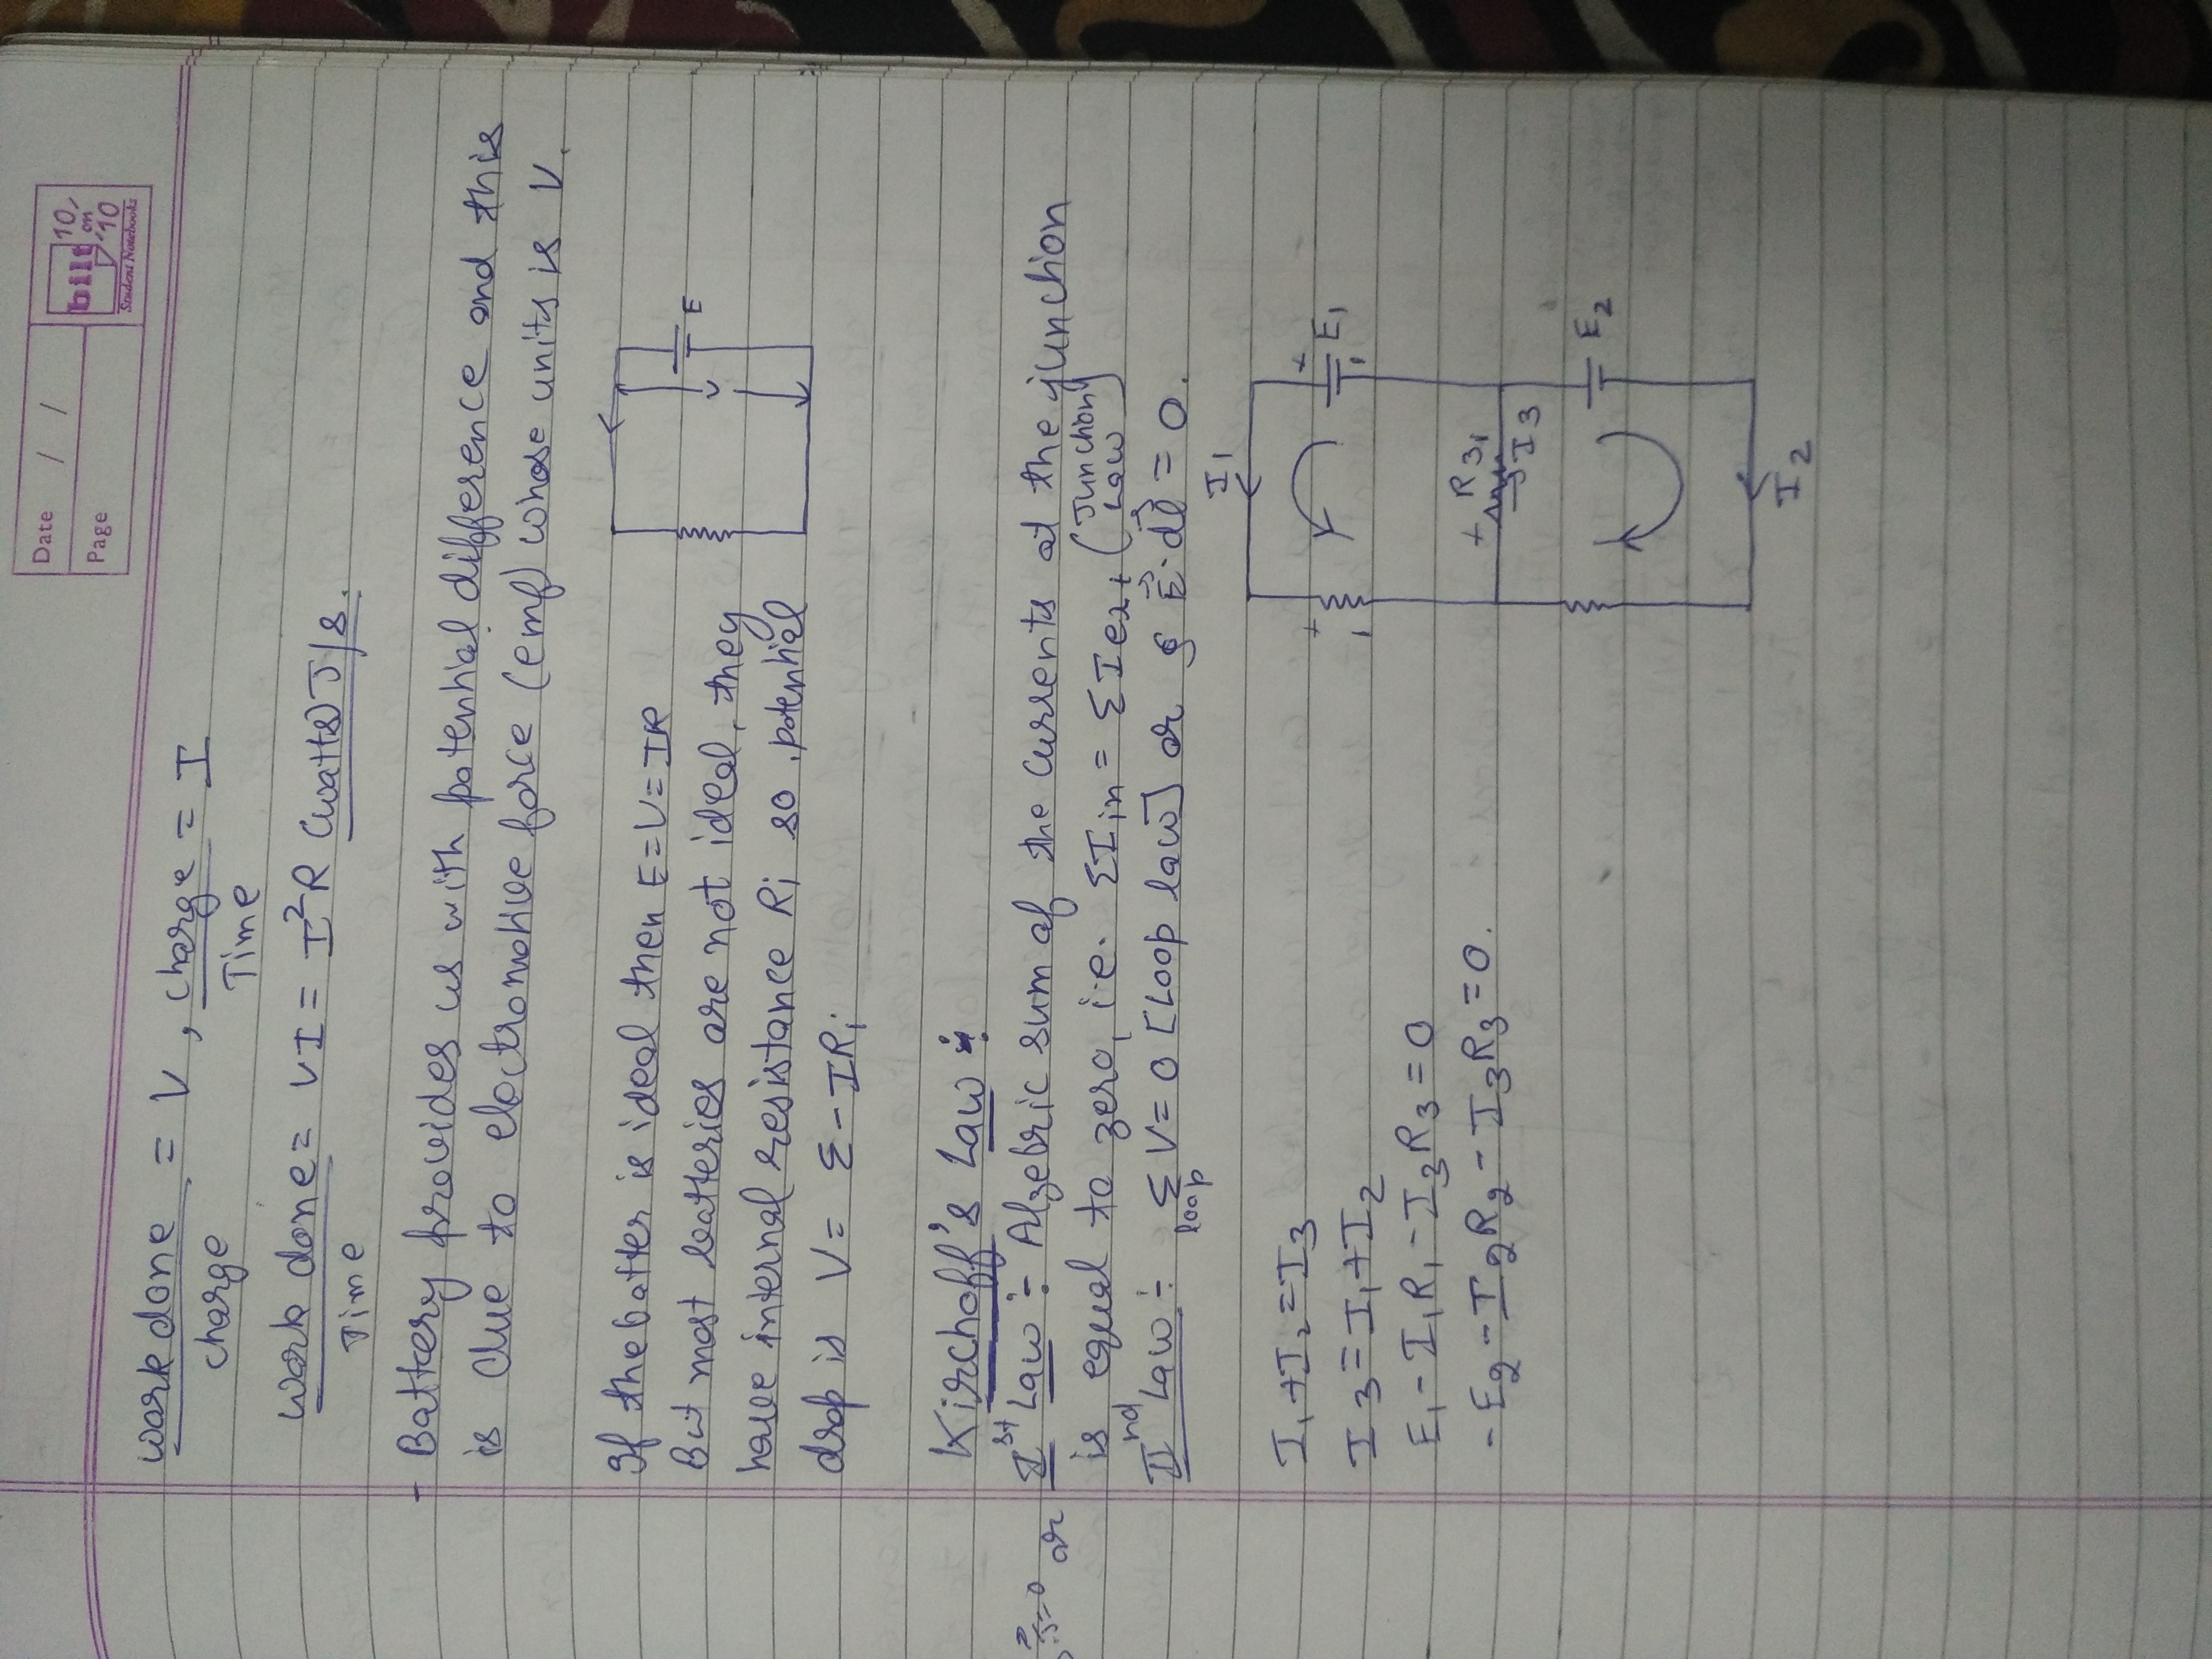 Date / /
Page
bilt 10 on 10
Student Notebooks
work done = V , charge = I
charge Time
work done = VI = I²R (watts) J/s.
Time
- Battery provides us with potential difference and this
is due to electromotive force (emf) whose units is V.
If the batter is ideal then E = V = IR
But most batteries are not ideal, they
have internal resistance Ri so, potential
drop is V = Σ - IRi
E
Kirchoff's Law :
or Ist Law :- Algebric sum of the currents at the junction
is equal to zero, i.e. ΣIin = ΣIext (Junction Law)
IInd Law :- Σ V = 0 [Loop law] or ∮ E⃗ . dl⃗ = 0.
loop
I1 + I2 = I3
I3 = I1 + I2
E1 - I1R1 - I3R3 = 0
- E2 - I2R2 - I3R3 = 0.
I1
+ E1 -
+ -
+ R3
I3
E2
I2